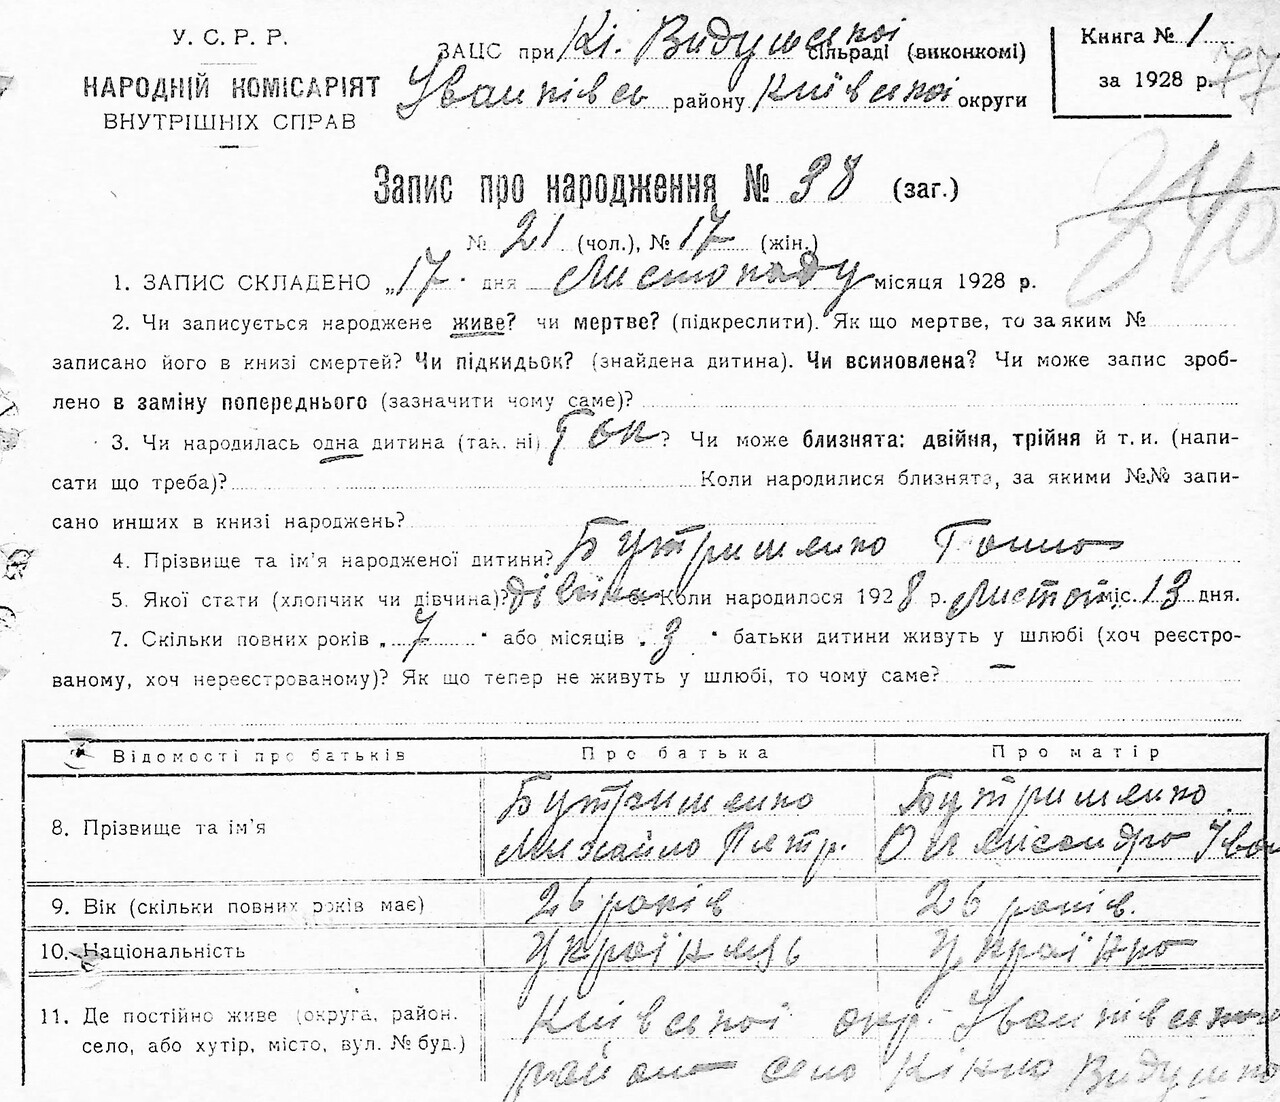 У. С. Р. Р.
НАРОДНІЙ КОМІСАРІЯТ
ВНУТРІШНІХ СПРАВ
ЗАЦС при Кі. Видушської сільраді (виконкомі)
Іванківсь району Київської округи
Книга № 1
за 1928 р. 77
Запис про народження № 38 (заг.)
№ 21 (чол.), № 17 (жін.)
1. ЗАПИС СКЛАДЕНО „17" дня Листопаду місяця 1928 р.
2. Чи записується народжене живе? чи мертве? (підкреслити). Як що мертве, то за яким №
записано його в книзі смертей? Чи підкидьок? (знайдена дитина). Чи всиновлена? Чи може запис зроб-
лено в заміну попереднього (зазначити чому саме)?
3. Чи народилась одна дитина (так. ні) Так? Чи може близнята: двійня, трійня й т. и. (напи-
сати що треба)? Коли народилися близнята, за якими №№ запи-
сано инших в книзі народжень?
4. Прізвище та ім'я народженої дитини? Бутрименко Ганна
5. Якої стати (хлопчик чи дівчина)? Коли народилося 1928 р. Листоп міс. 13 дня.
7. Скільки повних років „7" або місяців „3" батьки дитини живуть у шлюбі (хоч реєстро-
ваному, хоч нереєстрованому)? Як що тепер не живуть у шлюбі, то чому саме? —
Відомості про батьків Про батька Про матір
8. Прізвище та ім'я Бутрименко Михайло Петр. Бутрименко Олександра Іван
9. Вік (скільки повних років має) 26 років 26 років.
10. Національність Українець Українка
11. Де постійно живе (округа, район. Київської окр. Іванківського
село, або хутір, місто, вул. № буд.) району село